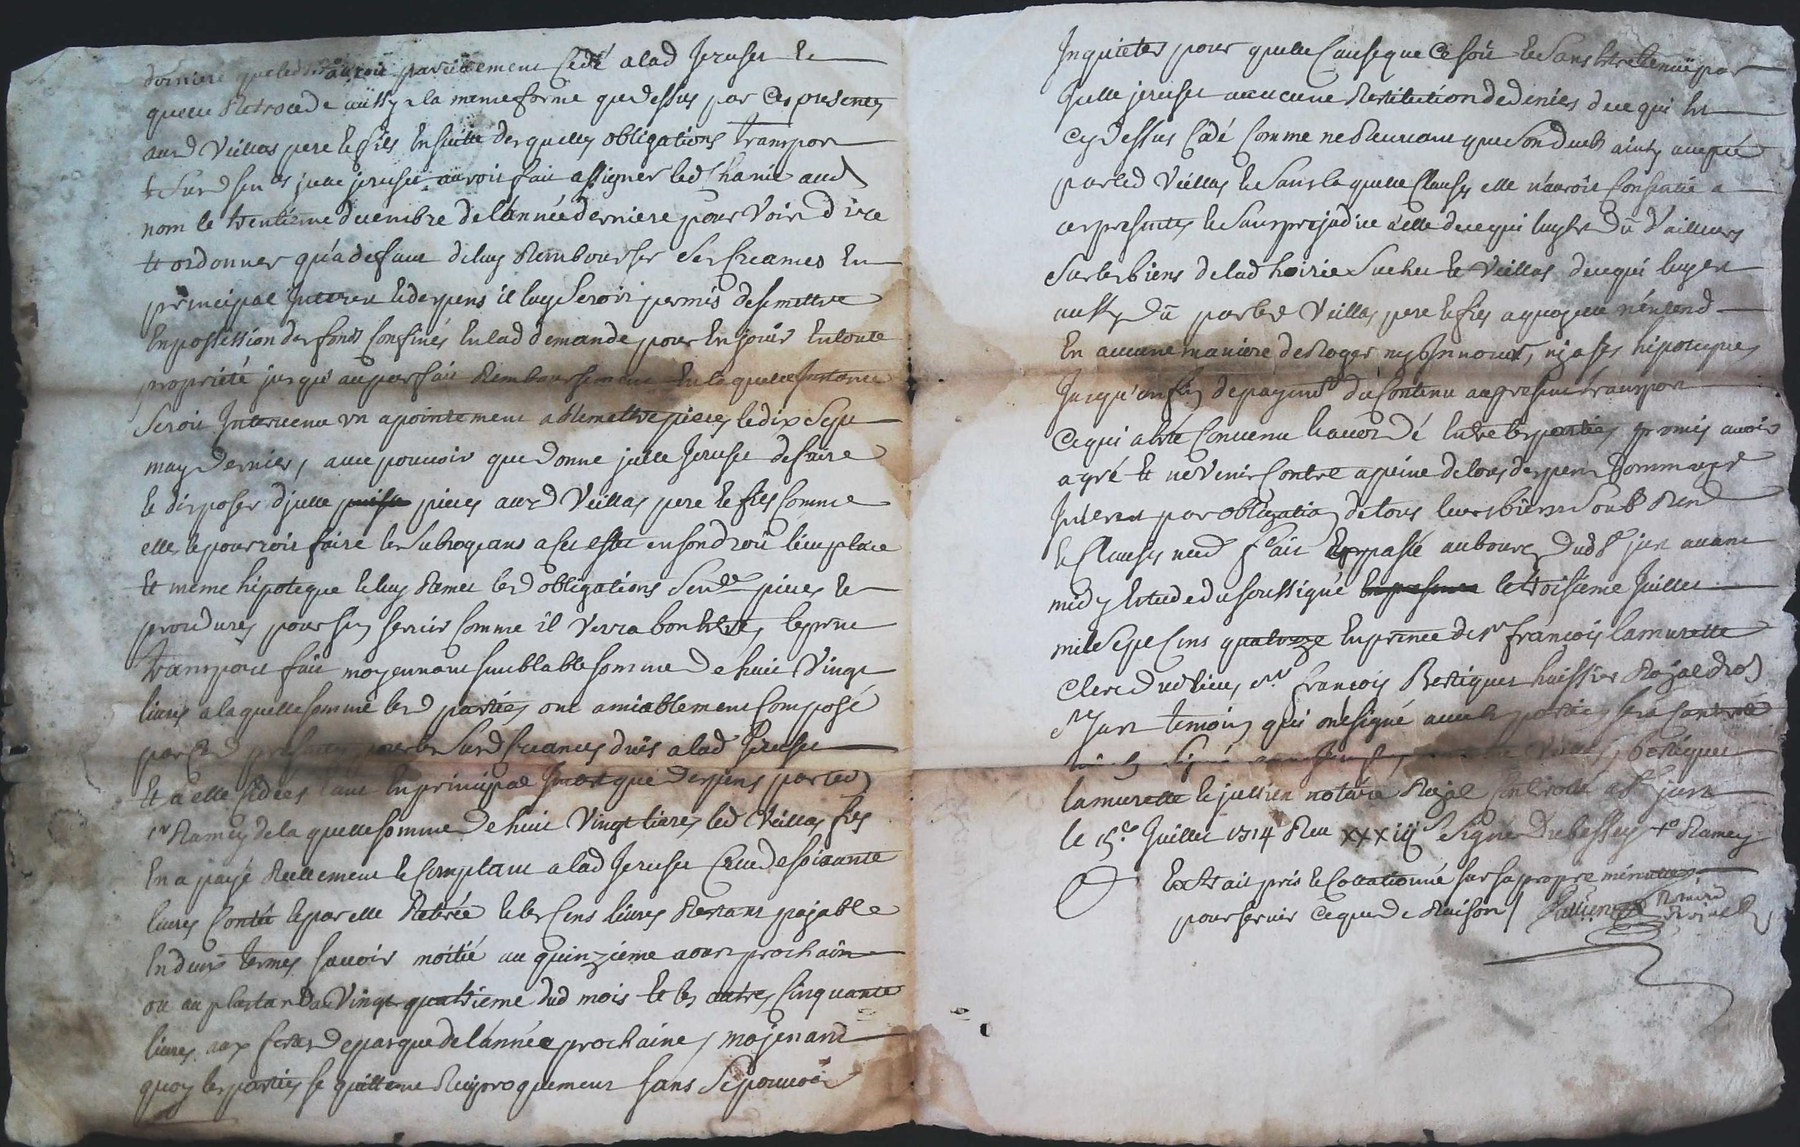 derniere que led auroit pareillement Cedé a lad Jeruse le
quelle Retrocede aussy a la meme forme que dessus par Ces presentes
aud Veillas pere le fils Ensuitte desquelles obligations transpor
t Surd jcelle jeruse auroit fait assigner led Chanie aud
nom le trentieme decembre de l'année derniere pour Voir dire
Et ordonner qu'a defaut de luy Rembourser Ses Creances En
principal Interest & despens il luy Seroit permis de Se mettre
En possession des fonds Confinés En lad demande pour En jouir En toute
proprieté jusqu'au parfait Remboursement En laquelle Instance
Seroit Intervenu un apointement a remettre pieces le dix Sept
may dernier, avec pouvoir que donne jcelle Jeruse de faire
& disposer d'jcelle pieces aud Veillas pere & fils Comme
elle le pourroit faire les Subrogeans a cet effet en son droit lieu place
Et meme hipoteque & luy Remet led obligations Sen.ce pieces &
procedures pour s'en servir Comme il Verra bon Estre, le prnt
transport fait moyennant semblable somme de huit Vingt
livres a laquelle somme led parties ont amiablement Composé
par Ced presentes pour les Surd Creances dues a lad Jeruse
Et a elle Cedées tant En principal Interest que despens par led
Sr Ramey de laquelle somme de huit Vingt livres led Veillas fils
En a payé Reellement & Comptant a lad Jeruse Celle de soixante
livres Contée & par elle Retirée & les Cens livres Restant payable
En deux termes sçavoir moitié au quinzieme aoust prochain
ou au plustard au Vingt quatrieme dud mois Et les autres Cinquante
livres aux festes de pasque de l'année prochaine, moyenant
quoy les parties se quittent Reciproquement sans Se pouvoir
Inquieter pour quelle Cause que Ce soit & Sans Estre tenue par
jcelle jeruse a aucune Restitution de denies de ce qui Est
Cy dessus Cedé Comme ne Recevant que Son deub ainsy accepté
par led Veillas & Sans laquelle Clause elle n'auroit Consenti a
ces presentes & Sans prejudice a elle de ce qui luy Est Dû d'ailleurs
Sur les biens de lad hoirie Suchet & Veillas de ce qui luy est
aussy dû par led Veillas pere & fils a quoy elle n'entend
En aucune maniere deRoger ny Innover, ny a ses hipoteques
Jusqu'en fin de payemt du Contenu au present transport
Ce qui a Esté Convenu & accordé Entre les parties promis avoir
agré Et ne Venir Contre a peine de tous despens Dommages
Interest par obligation de tous leurs biens Soub Ren
& Clauses necd fait & passé au bourg dud St just avant
midy Estude du soussigné le troisieme Juillet
mil Sept Cens quatorze En prnce de Sr françois lamurette
Clerc dud lieu, & Sr françois Berique huissier Royal dud
St Just temoins qui ont signé avec les parties sera Controlé
Veillas, berique
lamurette & jullien notaire Royal Controlé a St just
le 15e Juillet 1714 Reçu XXXiiij Signé Dubessey & Ramey
Extrait pris & Collationné sur sa propre minutte
pour servir Ce que de Raison / Jullien Notaire Royal